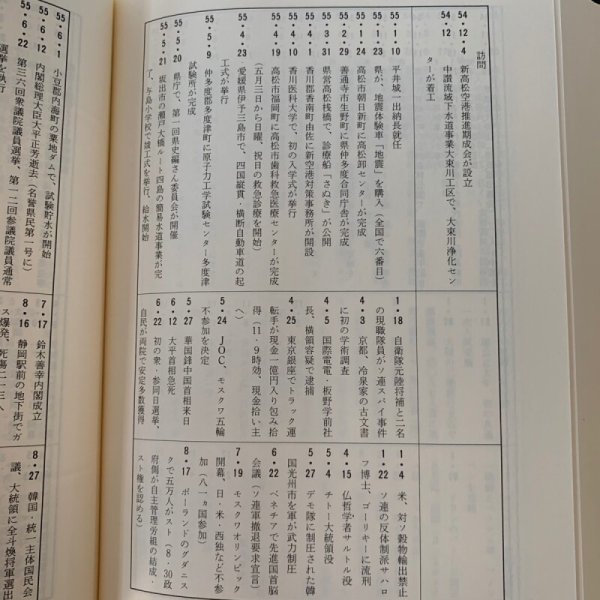 訪問
54・12・4 新高松空港推進期成会が設立
54・12 中讃流域下水道事業大束川工区で、大束川浄化セン
ターが着工
55・1・10 平井城一出納長就任
55・1・23 県が、地震体験車「地震」を購入(全国で六番目)
55・1・24 高松市朝日新町に高松卸センターが完成
55・2・29 善通寺市生野町に県仲多度合同庁舎が完成
55・3・31 県営高松桟橋で、診療船「さぬき」が公開
55・4・1 香川郡香南町由佐に新空港対策事務所が開設
55・4・10 香川医科大学で、初の入学式が挙行
55・4・19 高松市福岡町に高松市歯科救急医療センターが完成
(五月三日から日曜、祝日の救急診療を開始)
55・4・23 愛媛県伊予三島市で、四国縦貫・横断自動車道の起
工式が挙行
55・5・9 仲多度郡多度津町に原子力工学試験センター多度津
試験所が完成
55・5・20 県庁で、第一回県史編さん委員会が開催
55・5・21 坂出市の瀬戸大橋ルート四島の簡易水道事業が完
了、与島小学校で竣工式を挙行、給水開始
55・6・1 小豆郡内海町の粟地ダムで、試験貯水が開始
55・6・12 内閣総理大臣大平正芳逝去(名誉県民第一号に)
55・6・22 第三六回衆議院議員選挙、第一二回参議院議員通常
選挙を執行
1・18 自衛隊元陸将補と二名
の現職隊員がソ連スパイ事件
4・3 京都、冷泉家の古文書
に初の学術調査
4・5 国際電電・板野学前社
長、横領容疑で逮捕
4・25 東京銀座でトラック運
転手が現金一億円入り包み拾
得(11・9時効、現金拾い主
5・24 JOC、モスクワ五輪
不参加を決定
5・27 華国鋒中国首相来日
6・12 大平首相急死
6・22 初の衆・参同日選挙、
自民が両院で安定多数獲得
7・17 鈴木善幸内閣成立
8・16 静岡駅前の地下街でガ
ス爆発、死傷二一三人
1・4 米、対ソ穀物輸出禁止
1・22 ソ連の反体制派サハロ
フ博士、ゴーリキーに流刑
4・15 仏哲学者サルトル没
5・4 チトー大統領没
5・27 デモ隊に制圧された韓
国光州市を軍が武力制圧
6・22 ベネチアで先進国首脳
会議(ソ連軍撤退要求宣言)
7・19 モスクワオリンピック
開幕、日・米・西独など不参
加(八一カ国参加)
8・17 ポーランドのグダニス
クで五万人がスト(8・30政
府側が自主管理労組の結成・
スト権を認める)
8・27 韓国・統一主体国民会
議、大統領に全斗煥将軍選出